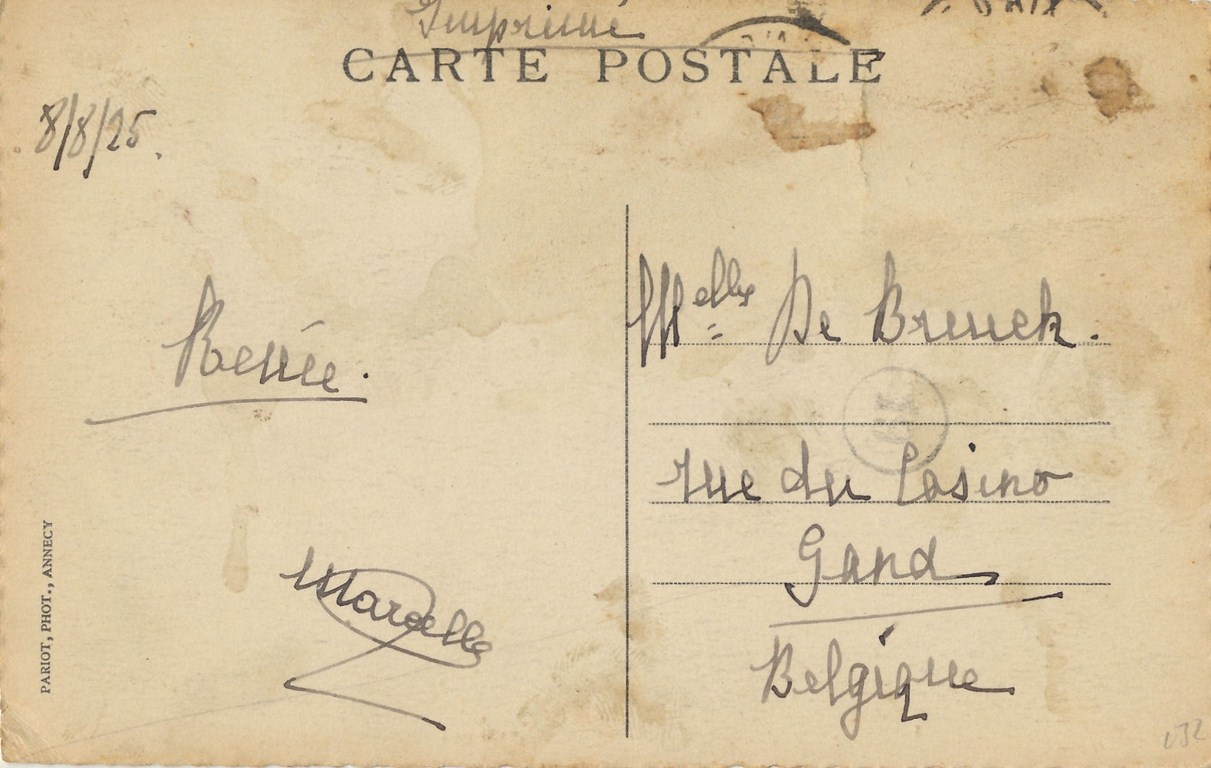 Imprimé
CARTE POSTALE
8/8/25.
Renée.
Marcelle
PARIOT, PHOT., ANNECY
Melle De Bruuck.
rue du Casino
Gand
Belgique
132